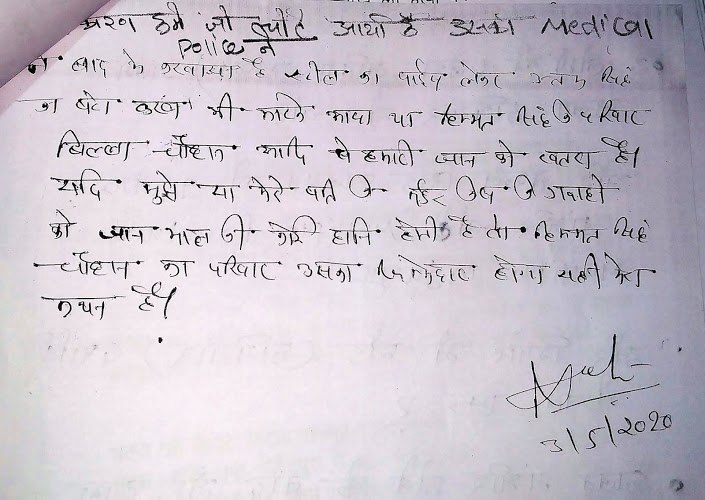 हमे जो चोटे आयी है उसका Medical
Police ने
बाद के करवाया है स्टील का पाईप लेकर सिंह
का बेटा करण भी मारने आया था हिम्मत सिंह परिवार
बिल्ला चौहान आदि से हमारी जान को खतरा है।
यदि मुझे या मेरे पति गवाहो
को जान माल की कोई हानि होती है तो हिम्मत सिंह
चौहान का परिवार उसका जिम्मेदार होगा यही मेरा
कथन है।
3/5/2020